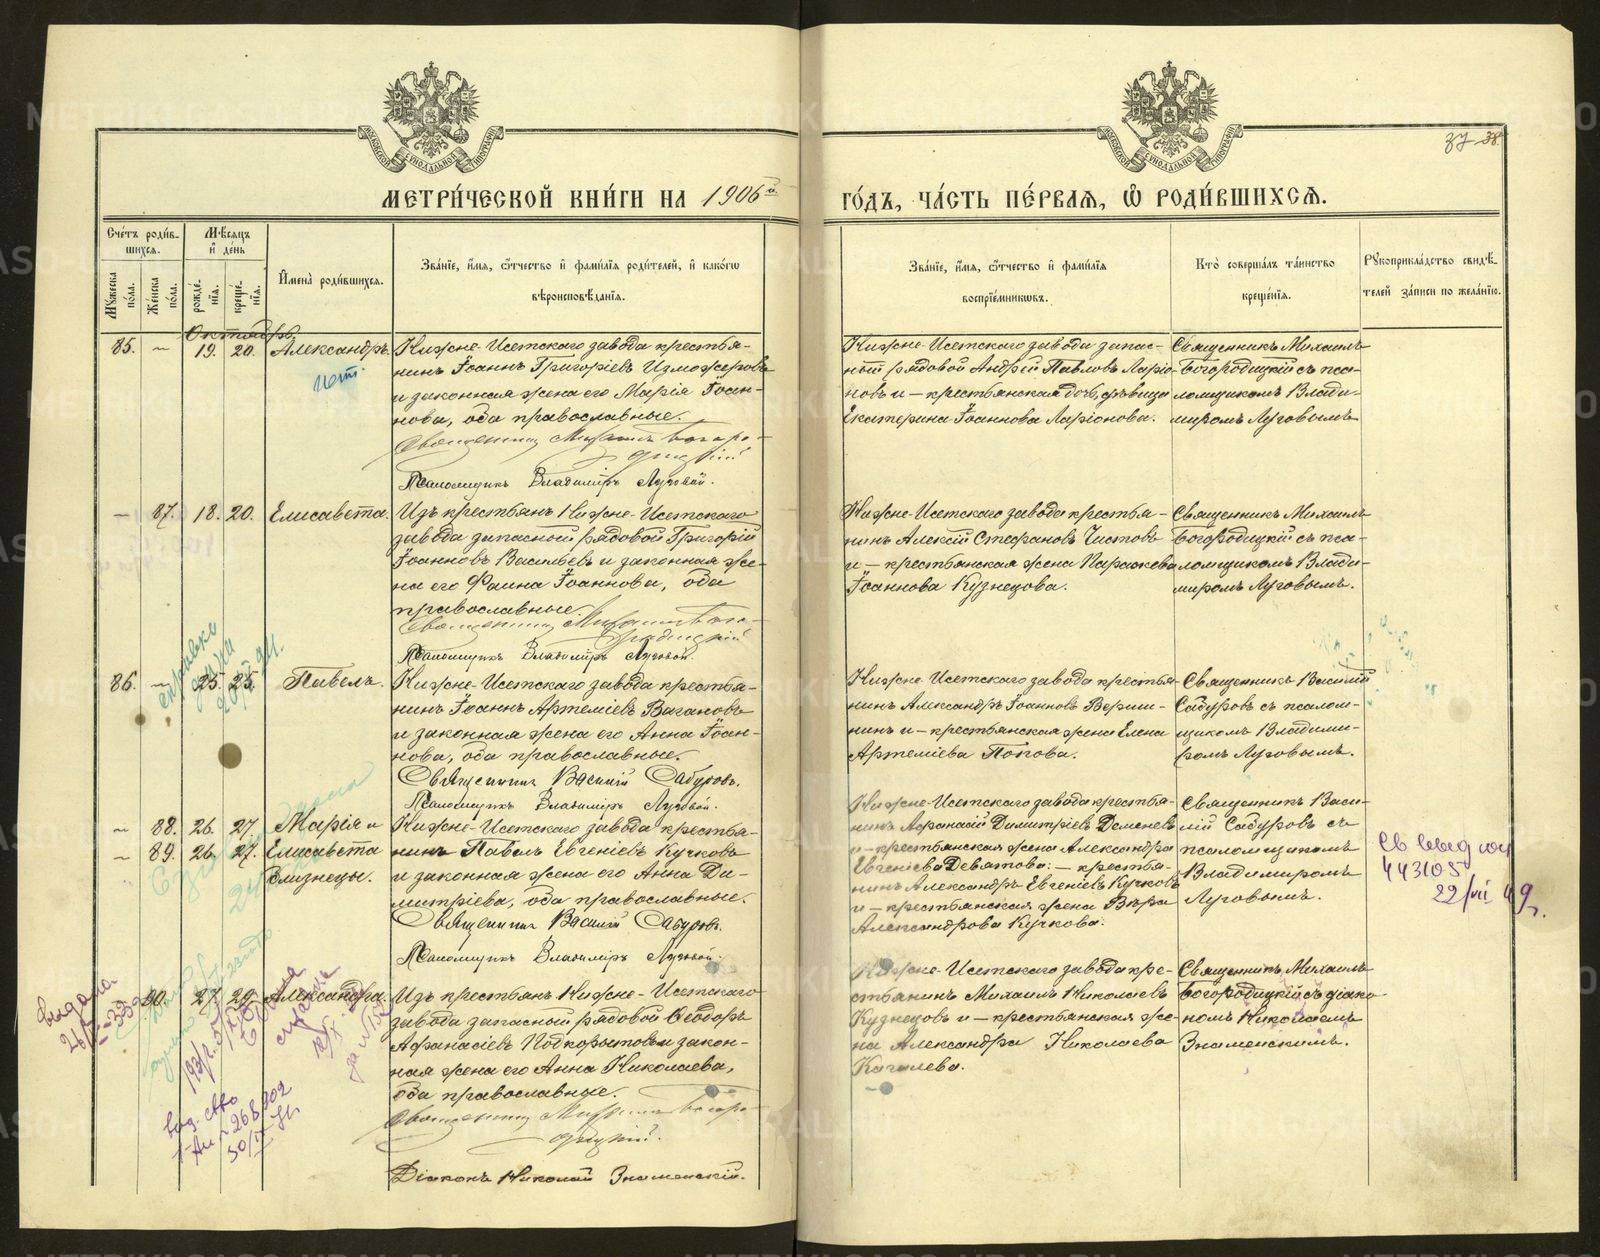 МЕТРИ́ЧЕСКОЙ КНИ́ГИ НА 1906й
ГО́ДЪ, ЧА́СТЬ ПЕ́РВАЯ, Ѽ РОДИ́ВШИХСЯ.
37 38
Сче́тъ роди́в-
шихся.
Мѣ́сяцъ
и҆ де́нь
Му́жеска по́ла.
Же́нска по́ла.
рожде́-
нїя.
креще́-
нїя.
И҆мена̀ роди́вшихся.
Зва́нїе, и҆́мя, ѻ҆́тчество и҆ фами́лїя роди́телей, и҆ како́гѡ
вѣроисповѣ́данїя.
Зва́нїе, и҆́мя, ѻ҆́тчество и҆ фами́лїя
воспрїе́мникѡвъ.
Кто̀ соверша́лъ та́инство
креще́нїя.
Рукоприкла́дство свидѣ́-
телей за́писи по жела́нїю.
Октябрь
85. — 19. 20. Александръ.
Нижне-Исетскаго завода крестья-
нинъ Іоаннъ Григоріевъ Изможеровъ
и законная жена его Марія Іоан-
нова, оба православные.
Священникъ Михаилъ Богоро-
дицкій
Псаломщикъ Владиміръ Луговой.
Нижне-Исетскаго завода запас-
ный рядовой Андрей Павловъ Ларіо-
новъ и — крестьянская дочь, дѣвица
Екатерина Іоаннова Ларіонова.
Священникъ Михаилъ
Богородицкій съ пса-
ломщикомъ Влади-
миромъ Луговымъ.
— 87. 18. 20. Елисавета.
Изъ крестьянъ Нижне-Исетскаго
завода запасный рядовой Григорій
Іоанновъ Васильевъ и законная же-
на его Фаина Іоаннова, оба
православные.
Священникъ Михаилъ Бого-
родицкій
Псаломщикъ Владиміръ Луговой.
Нижне-Исетскаго завода крестья-
нинъ Алексій Стефановъ Чистовъ
и — крестьянская жена Параскева
Іоаннова Кузнецова.
Священникъ Михаилъ
Богородицкій съ пса-
ломщикомъ Влади-
миромъ Луговымъ.
86. — 25. 25. Павелъ.
Нижне-Исетскаго завода крестья-
нинъ Іоаннъ Артеміевъ Вагановъ
и законная жена его Анна Іоан-
нова, оба православные.
Священникъ Василій Сабуровъ.
Псаломщикъ Владиміръ Луговой.
Нижне-Исетскаго завода крестья-
нинъ Александръ Іоанновъ Верши-
нинъ и — крестьянская жена Елена
Артеміева Попова.
Священникъ Василій
Сабуровъ съ псалом-
щикомъ Владими-
ромъ Луговымъ.
— 88. 26. 27. Марія и
— 89. 26. 27. Елисавета
близнецы.
Нижне-Исетскаго завода крестья-
нинъ Павелъ Евгеніевъ Кучковъ
и законная жена его Анна Ди-
митріева, оба православные.
Священникъ Василій Сабуровъ.
Псаломщикъ Владиміръ Луговой.
Нижне-Исетскаго завода крестья-
нинъ Афанасій Димитріевъ Деменевъ
и — крестьянская жена Александра
Евгеніева Девятова: — крестья-
нинъ Александръ Евгеніевъ Кучковъ
и — крестьянская жена Вѣра
Александрова Кучкова.
Священникъ Васи-
лій Сабуровъ съ
псаломщикомъ
Владимиромъ
Луговымъ.
443105
22/VII 49 г.
90. 27. 29. Александра.
Изъ крестьянъ Нижне-Исетскаго
завода запасный рядовой Ѳеодоръ
Афанасіевъ Подкорытовъ и закон-
ная жена его Анна Николаева,
оба православные.
Священникъ Михаилъ Богоро-
дицкій.
Діаконъ Николай Знаменскій.
Нижне-Исетскаго завода кре-
стьянинъ Михаилъ Николаевъ
Кузнецовъ и — крестьянская же-
на Александра Николаева
Каголева.
Священникъ Михаилъ
Богородицкій съ діако-
номъ Николаемъ
Знаменскимъ.
выдана